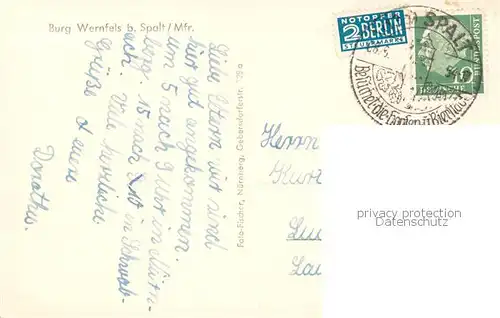 Burg Wernfels b. Spalt/Mfr.
NOTOPFER
2 BERLIN
STEUERMARKE
SPALT
DEUTSCHE
BUNDESPOST
10
Berühmte Hopfen- u. Bierstadt
Liebe Eltern wir sind
hier gut angekommen.
um 5 nach 9 Uhr in Nürn-
berg 15 nach 10 in Schwab-
ach. Viele herzliche
Grüße Eure
Dorothee.
Foto-Fischer, Nürnberg, Gebersdorferstr. 29 a
Herrn
Kurt
privacy protection
Datenschutz